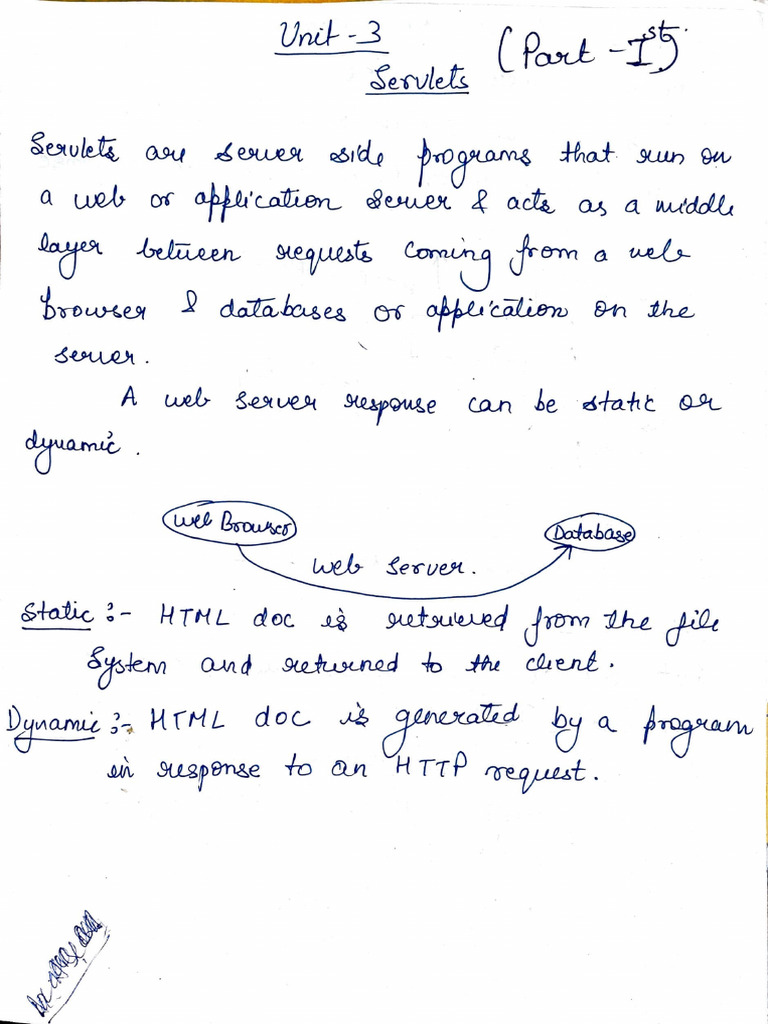 Unit - 3 (Part - Ist)
Servlets
Servlets are server side programs that run on
a web or application server & acts as a middle
layer between requests coming from a web
browser & databases or application on the
server.
A web server response can be static or
dynamic.
Web Browser Database
Web Server.
Static :- HTML doc is retrieved from the file
System and returned to the client.
Dynamic :- HTML doc is generated by a program
in response to an HTTP request.